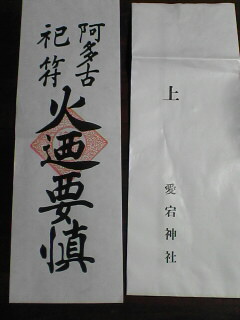 阿多古
祀符
火迺要慎
上
愛宕神社